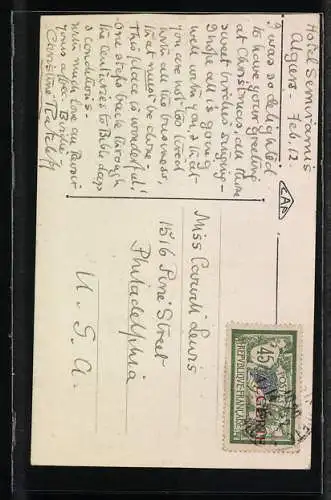 Hotel Semiramis
Algiers - Feb. 12
I was so delighted
to have your greeting
at Christmas, all those
sweet birdies singing -
I hope all is going
well with you, & that
you are not too tired
with all the business,
that must be done
This place is wonderful!
One steps back through
the centuries to Bible days
& conditions -
with much love au Revoir
yours affec. Birdie
Christine
CAP
Miss Carroll Lewis
1516 Pine Street
Philadelphia
U. S. A.
45
POSTES
ALGÉRIE
REPUBLIQUE FRANÇAISE